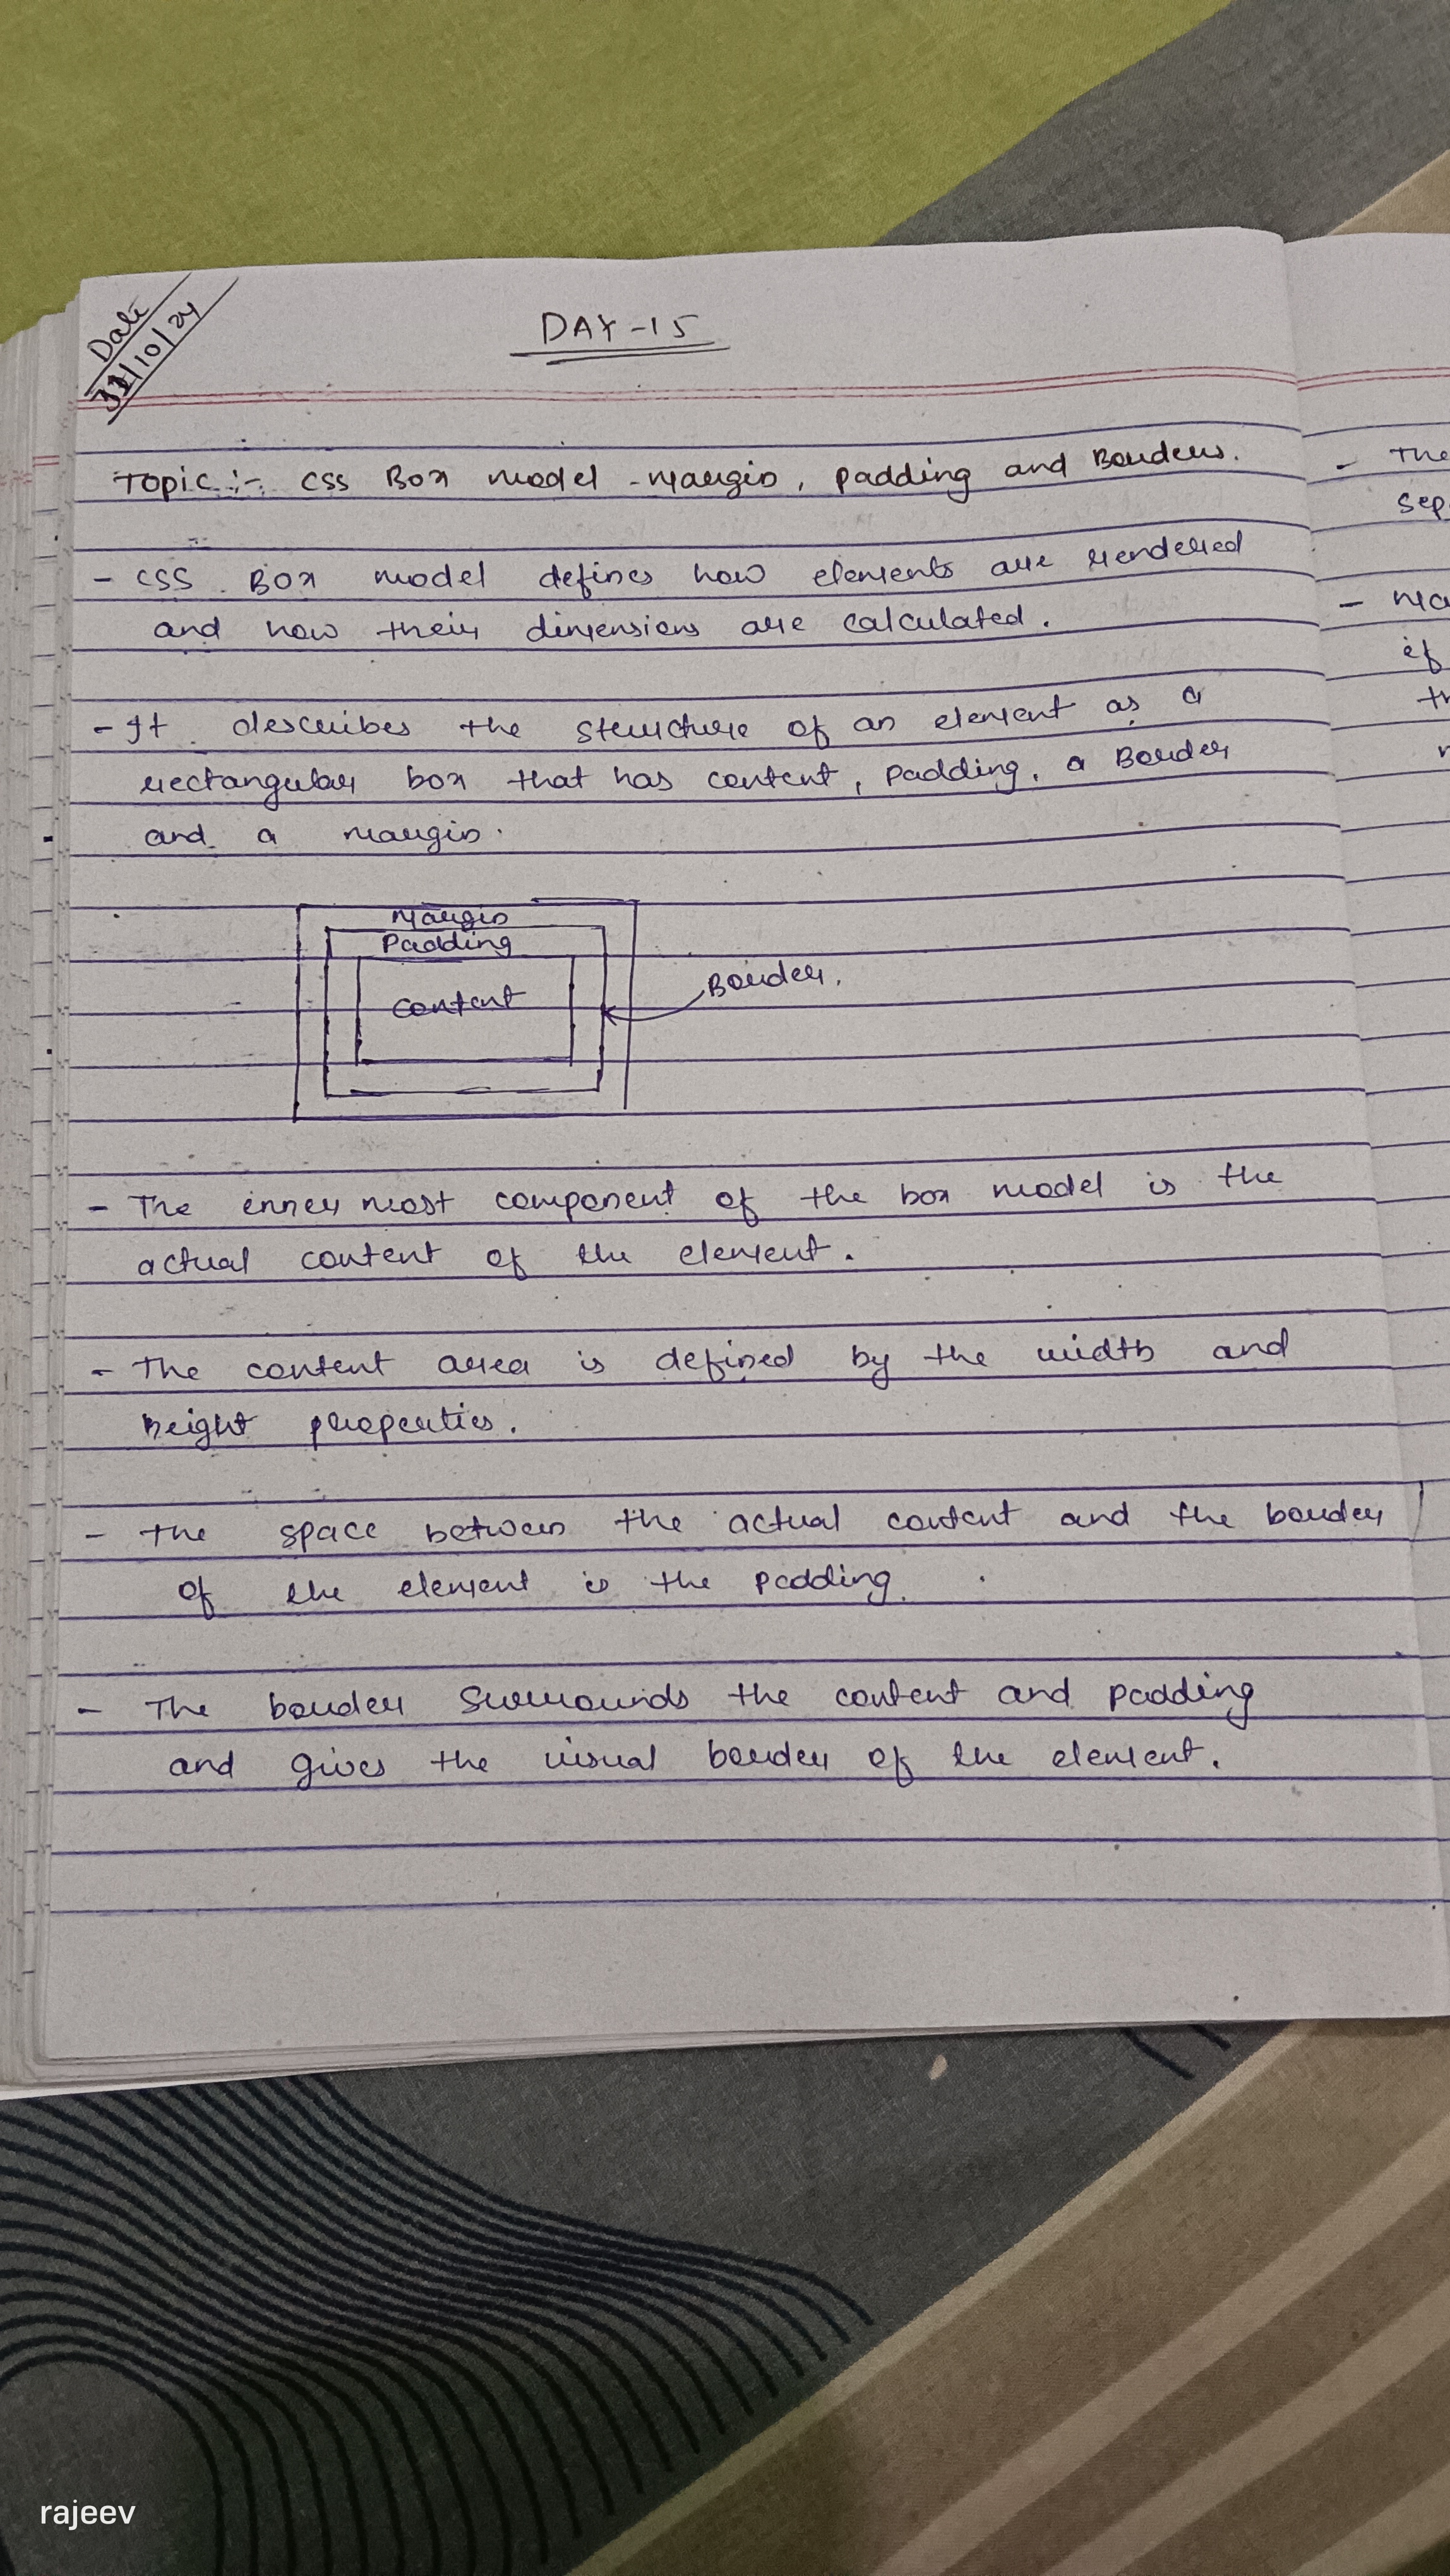 Date
31/10/24
DAY-15
Topic :- CSS Box model - Margin, Padding and Borders.
- CSS Box model defines how elements are rendered
and how their dimensions are calculated.
- It describes the structure of an element as a
rectangular box that has content, padding, a Border
and a margin.
Margin
Padding
content
Border.
- The inner most component of the box model is the
actual content of the element.
- The content area is defined by the width and
height properties.
- The space between the actual content and the border
of the element is the padding.
- The border surrounds the content and padding
and gives the visual border of the element.
- The
sep
- Ma
if
th
rajeev